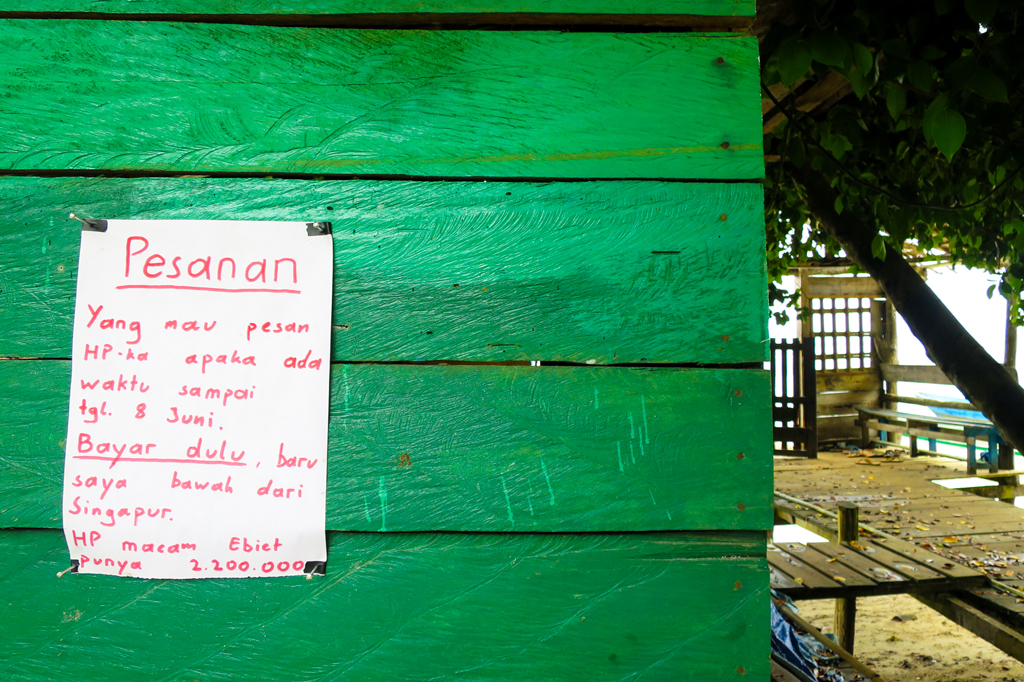 Pesanan
Yang mau pesan
HP-ka apaka ada
waktu sampai
tgl. 8 Juni.
Bayar dulu, baru
saya bawah dari
Singapur.
HP macam Ebiet
punya 2.200.000